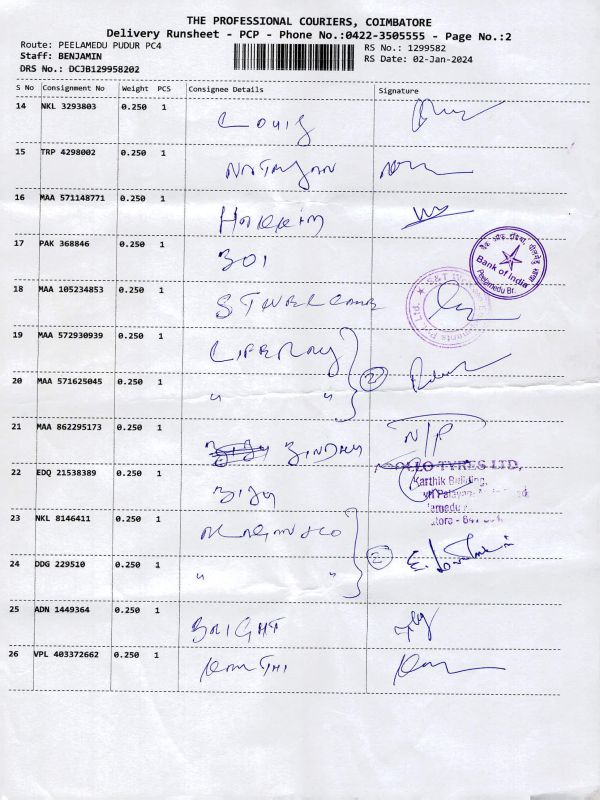 THE PROFESSIONAL COURIERS, COIMBATORE
Delivery Runsheet - PCP - Phone No.:0422-3505555 - Page No.:2
Route: PEELAMEDU PUDUR PC4
RS No.: 1299582
Staff: BENJAMIN
RS Date: 02-Jan-2024
DRS No.: DCJB129958202
S No Consignment No Weight PCS Consignee Details Signature
14 NKL 3293803 0.250 1
Louis
15 TRP 4298002 0.250 1
16 MAA 571148771 0.250 1
17 PAK 368846 0.250 1
BOI
Bank of India
Peelamedu Br.
18 MAA 105234853 0.250 1
19 MAA 572930939 0.250 1
20 MAA 571625045 0.250 1
" "
2
21 MAA 862295173 0.250 1
BINDHU
N/P
22 EDQ 21538389 0.250 1
BIJU
TYRES LTD,
Karthik Building,
23 NKL 8146411 0.250 1
24 DDG 229510 0.250 1
" "
2
25 ADN 1449364 0.250 1
BRIGHT
26 VPL 403372662 0.250 1